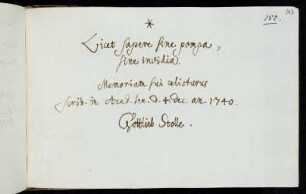 *
Licet sapere sine pompa,
sine invidia.
Memoriam sui relicturus
scrib. in Acad. Jen. d. 4. Dec. an. 1740.
Gottlieb Stolle.